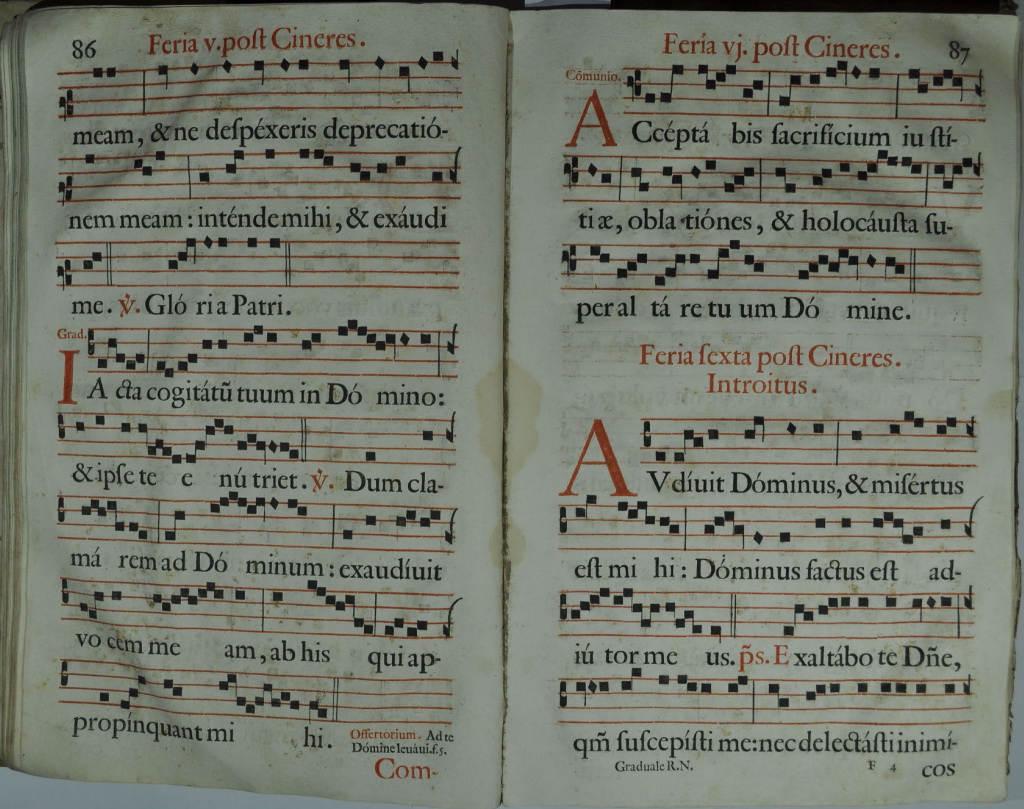 86 Feria v. poſt Cineres.
meam, & ne deſpéxeris deprecatió-
nem meam : inténde mihi, & exáudi
me. ℣. Gló ri a Patri.
Grad.
IA cta cogitátũ tuum in Dó mino:
& ipſe te e nú triet. ℣. Dum cla-
má rem ad Dó minum : exaudíuit
vo cem me am, ab his qui ap-
propínquant mi hi. Offertorium. Ad te
Dómine leuáui.f.5.
Com-
Feria vj. poſt Cineres. 87
Cómunio.
ACcéptá bis ſacrifícium iu ſtí-
ti æ, obla tiónes, & holocáuſta ſu-
per al tá re tu um Dó mine.
Feria ſexta poſt Cineres.
Introitus.
AVdíuit Dóminus, & miſértus
eſt mi hi : Dóminus factus eſt ad-
iú tor me us. p̃s. Exaltábo te Dñe,
qm̃ ſuſcepíſti me: nec delectáſti inimí-
Graduale R.N. F 4 cos